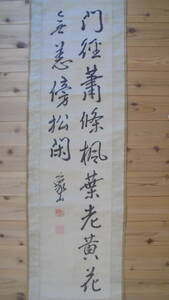 門徑蕭條楓葉老黃花
無恙傍松閑